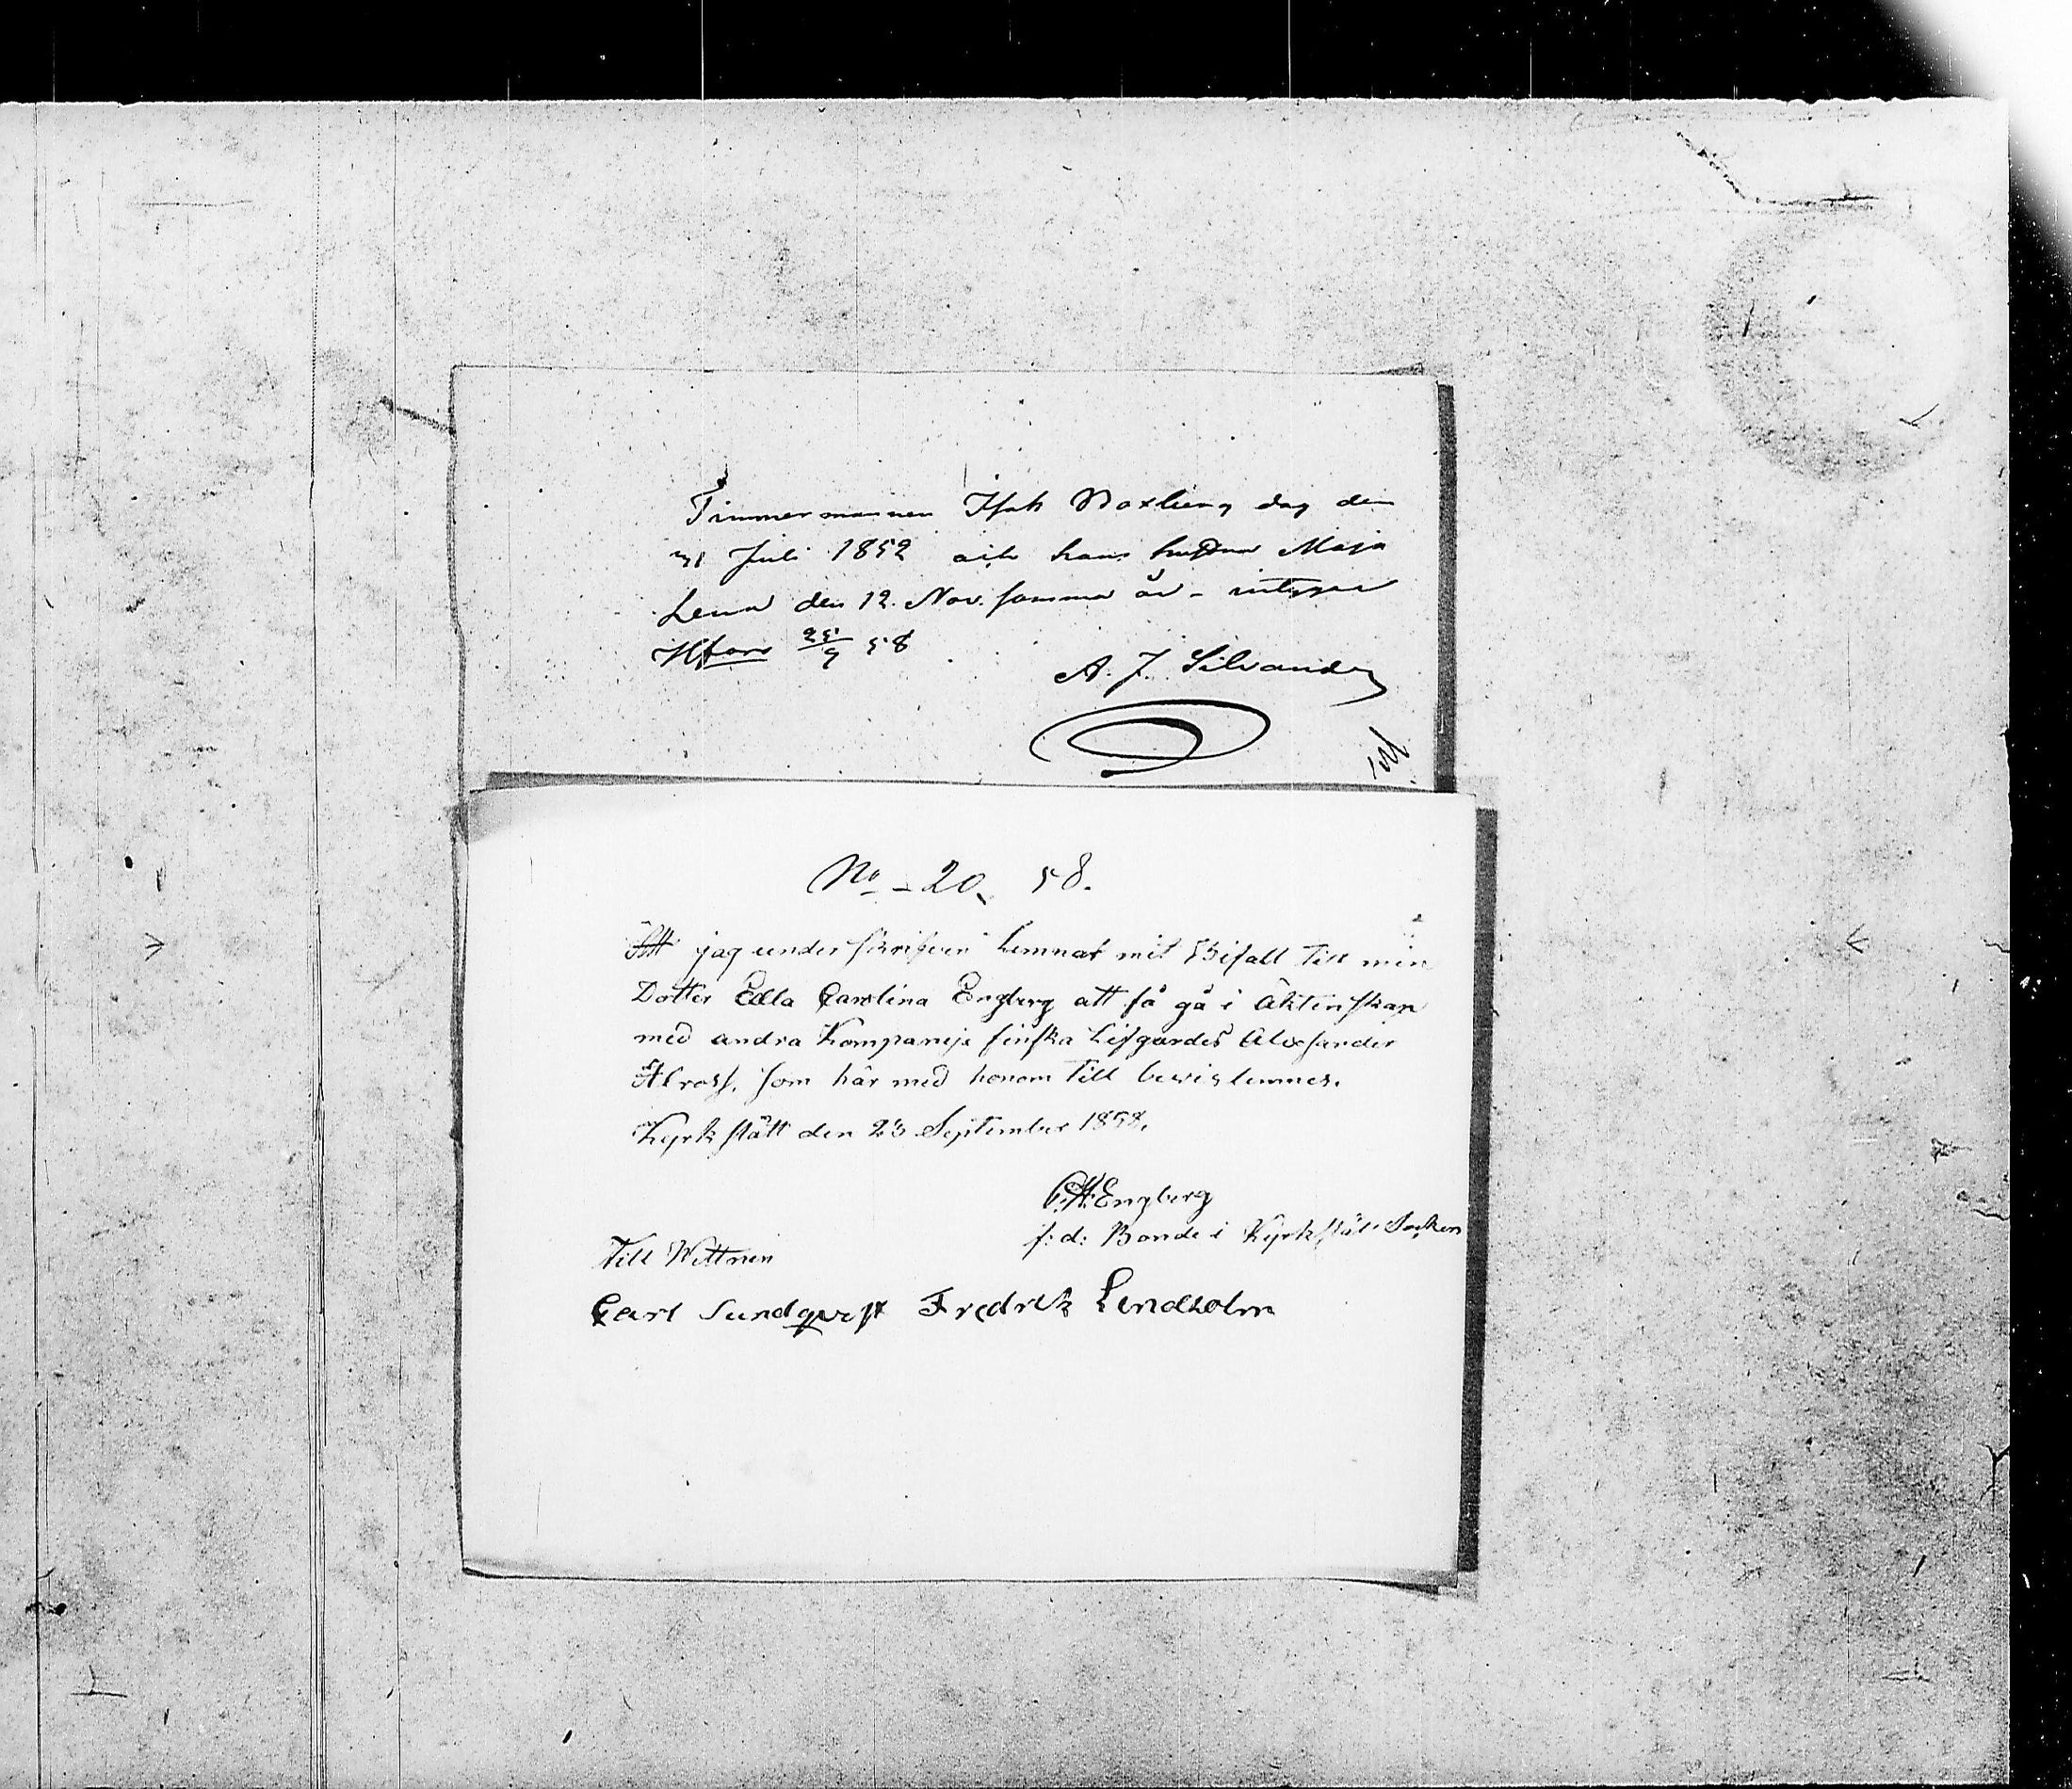 Timmermannen Isak Boxberg dog den
31 Juli 1852 och hans hustru Maja
Lena den 12. Nov. samma år - intygar
Hfors 25/9 58
A. J. Silvander
No - 20, 58.
Att jag underskrifven lemnar mit Bifall till min
Dotter Edla Carolina Engberg att få gå i Äktenskap
med andra Kompanijs finska Lifgardes Alexsander
Alross, som här med honom till bevis lemnes.
Kyrkslätt den 23 September 1858.
Engberg
f: d: Bonde i Kyrkslätt Socken
Till Wittnen
Carl Sundqvist Fredrik Lindholm